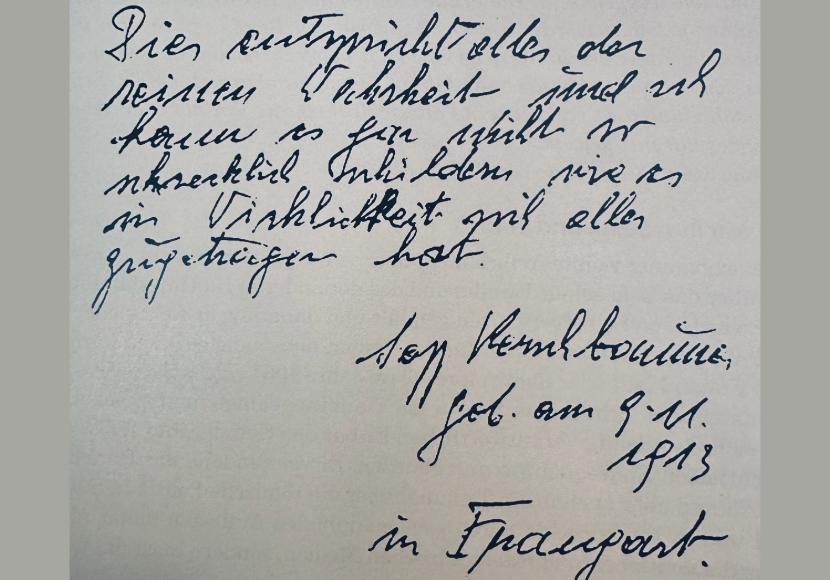 Dies entspricht alles der
reinen Wahrheit und ich
kann es gar nicht so
schrecklich schildern wie es
in Wirklichkeit sich alles
zugetragen hat.
Sepp Kerschbaumer,
geb. am 9.11.
1913
in Frangart.